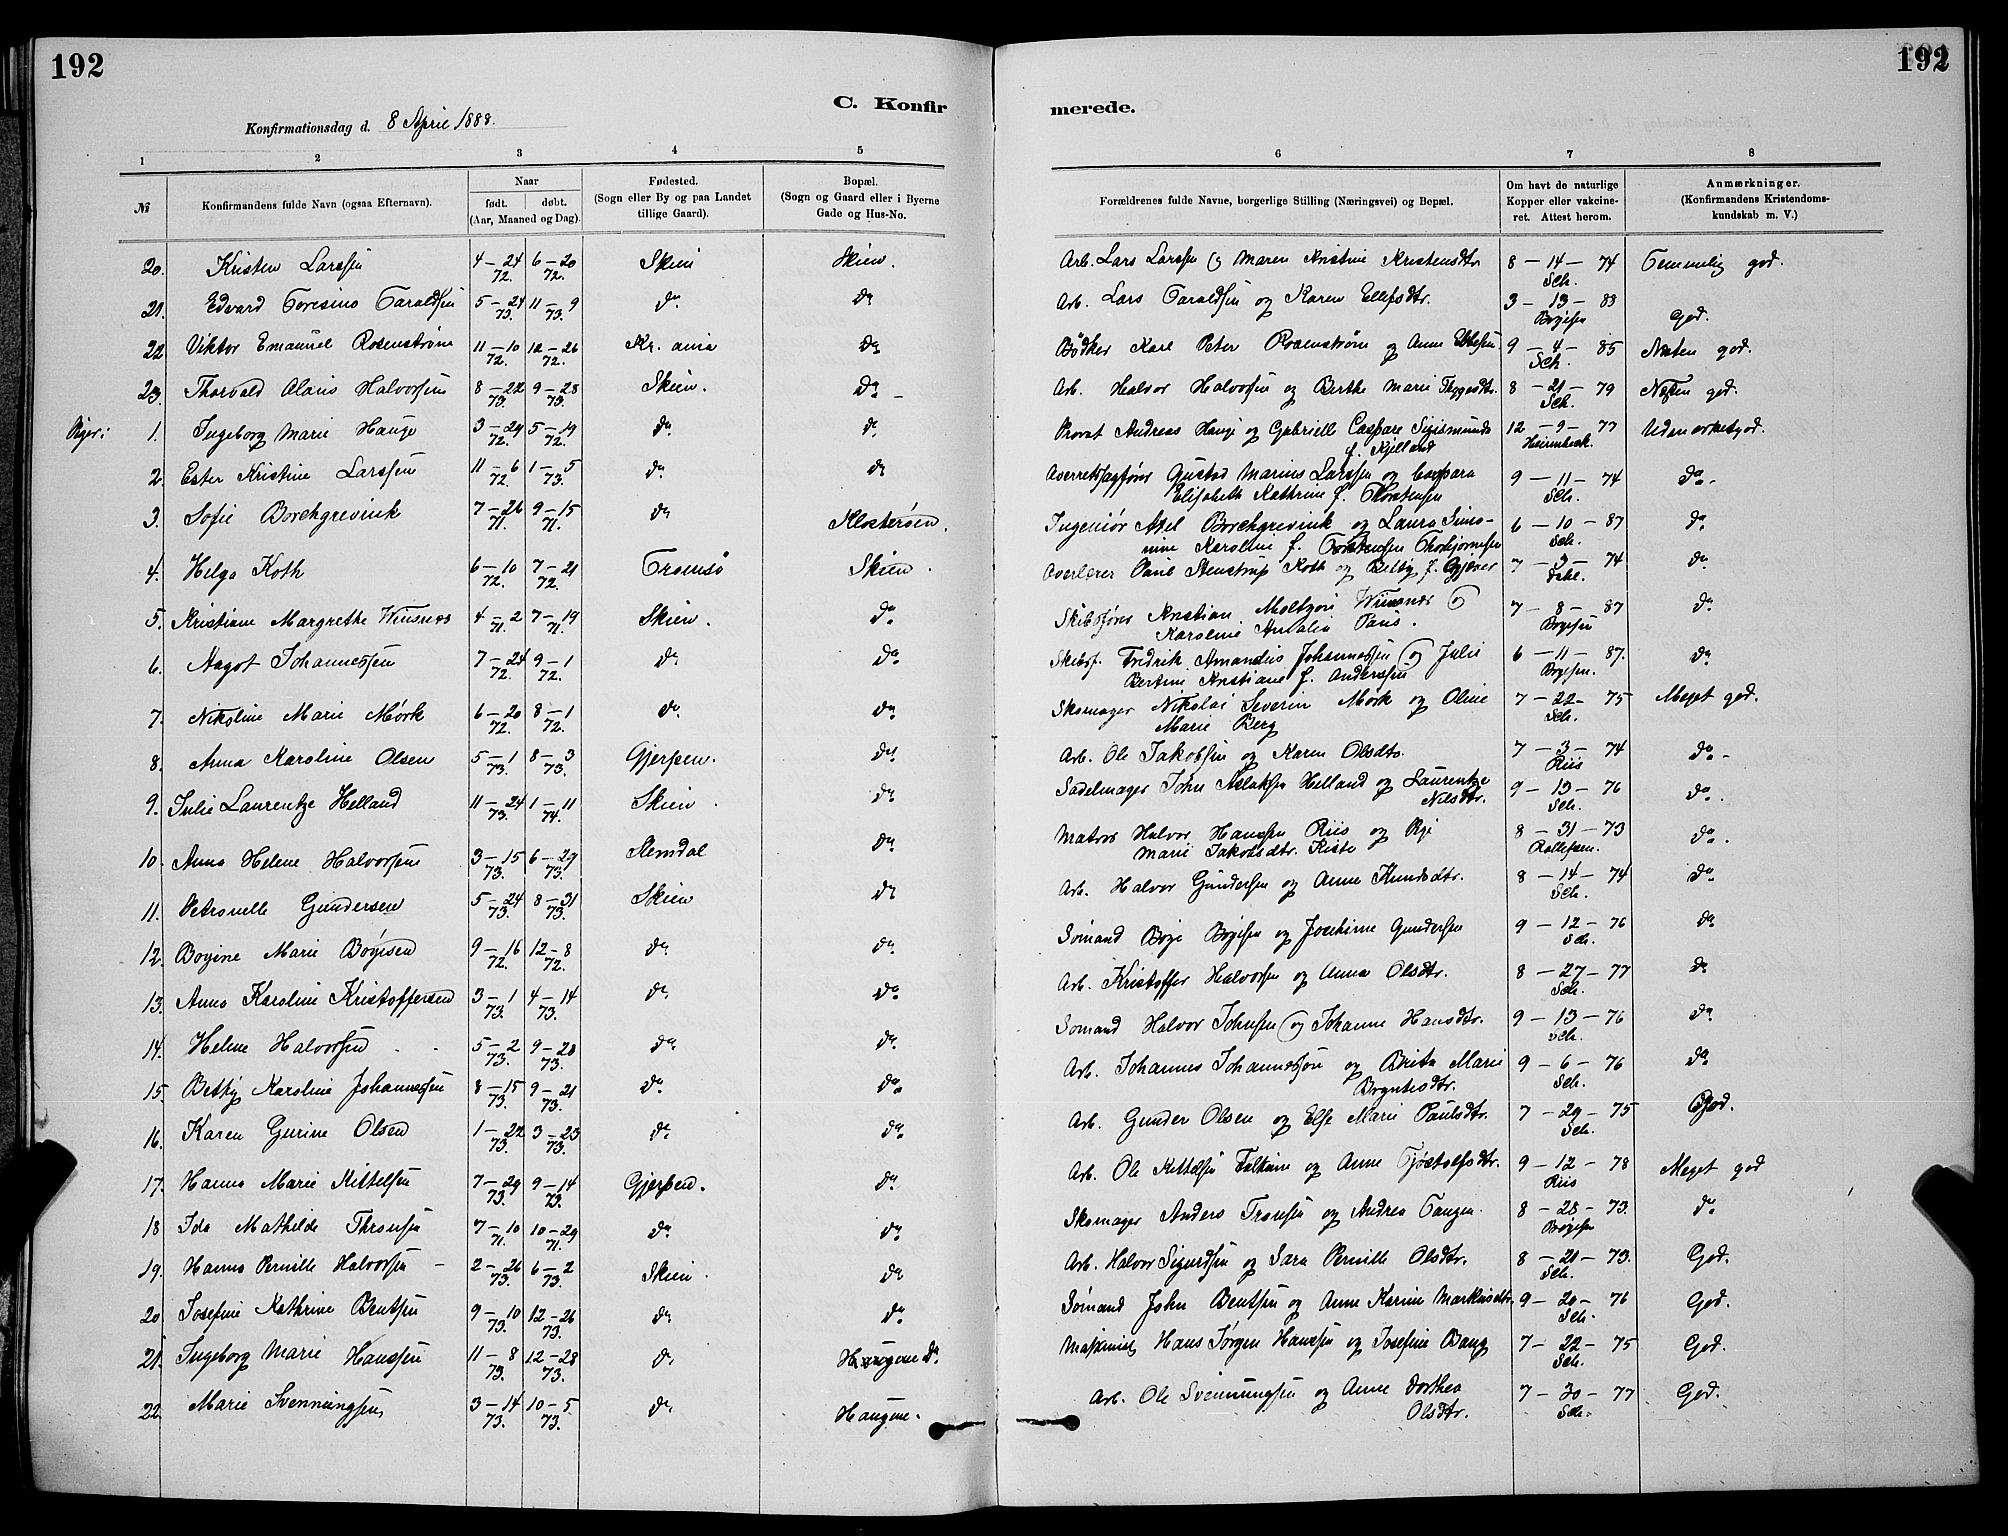 192
C. Konfir
Konfirmationsdag d. 8 April 1888.
1 2 3 4 5
№
Konfirmandens fulde Navn (ogsaa Efternavn).
Naar
født. døbt.
(Aar, Maaned og Dag).
Fødested.
(Sogn eller By og paa Landet
tillige Gaard).
Bopæl.
(Sogn og Gaard eller i Byerne
Gade og Hus-No.
20. Kristen Larssen 4-24 72. 6-20 72. Skien Skien.
21. Edvard Taraldsen 5-24 73. 11-9 73. do do
22 Viktor Emanuel Rosenstrøm 11-10 72. 12-26 72. Kr. ania do
23. Thorvald Halvorsen 8-22 73. 9-28 73. Skien. do
Piger: 1. Ingeborg Marie Hauge 3-29 72. 5-19 72. do do
2. Ester Kristine Larssen 11-6 72. 1-5 73. do do
3. Sofie Borchgrevink 7-26 71. 9-15 71. do Klosterøen.
4. Helga Koth 6-10 72. 7-21 72. Tromsø Skien.
5. Kristiane Margrethe Wiisnæs 4-2 71. 7-19 71. Skien. do
6. Aagot Johannessen 7-24 72. 9-1 72. do do
7. Nikoline Marie Mørk 6-20 72. 8-1 72. do do
8. Anna Karoline Olsen 5-1 73. 8-3 73. Gjerpen. do
9. Julie Laurentze Helland 11-24 73. 1-11 74. Skien. do
10. Anna Helene Halvorsen 3-15 73. 6-29 73. Slemdal do
11. Petronelle Gundersen 5-24 73. 8-31 73. Skien do
12. Boyine Marie Boyesen 9-16 72. 12-8 72. do do
13. Anna Karoline Kristoffersen 3-1 73. 4-14 73. do do
14. Helene Halvorsen 5-2 73. 9-28 73. do do
15. Betty Karoline Johannessen 8-15 73. 9-21 73. do do
16. Karen Gurine Olsen 1-22 73. 3-23 73. do do
17. Hanna Marie Kittelsen 7-29 73. 9-14 73. Gjerpen. do
18 Ida Mathilde Thronsen 7-10 71. 10-29 71. do do
19. Hanna Pernille Halvorsen 2-26 73. 6-2 73. Skien. do
20 Josefine Kathrine Bentsen 9-10 73. 12-26 73. do do
21. Ingeborg Marie Hanssen 11-8 73. 12-28 73. do Haugene do
22 Marie Svenningsen 3-14 73. 10-5 73. do Haugene.
192
merede.
6 7 8
Forældrenes fulde Navne, borgerlige Stilling (Næringsvei) og Bopæl.
Om havt de naturlige
Kopper eller vakcine-
ret. Attest herom.
Anmærkninger.
(Konfirmandens Kristendoms-
kundskab m. V.)
Arb. Lars Larssen og Maren Kristine Kristensdtr. 8-14-74 Sch. Temmelig god.
Arb. Lars Taraldsen og Karen Ellefsdtr. 3-13-88 Boyesen God.
Bødker Karl Peter Rosenstrøm og Anne 9-4-85 Sch. Næsten god.
Arb. Halvor Halvorsen og Berthe Marie Thygesdtr. 8-21-79 Sch. Næsten god.
Provst Andreas Hauge og Gabrielle Caspare Sigismunda 12-9-77 Heimbeck. Udmærketgod.
f. Kjelland
Overretssagfører Gustav Marius Larssen og Caspara 9-11-74 Sch. do
Elisabeth Kathrine f. Thorstensen
Ingeniør Axel Borchgrevink og Laura Simo- 6-10-87 Sch. do
nine Karoline f. Thorbjørnsen
Overlærer Paul Stenstrup Koth og Betty f. Gjæver 7-3-74 Dahl. do
Skibsfører Kristian Moltzou Wiisnæs og 7-8-87 Boyesen do
Karoline Amalia Paus.
Skibsf. Fredrik Amandus Johannessen og Julie 6-11-87. Boyesen. do
Bertine Kristiane f. Anderssen
Skomager Nikolai Severin Mørk og Oline 7-22-75 Sch. Meget god.
Marie Berg
Arb. Ole Jakobsen og Karen Olsdtr. 7-3-74 Riis do
Sadelmager John Aslaksen Helland og Laurentze 9-13-76 Sch. do
Nilsdtr.
Matros Halvor Hanssen Riis og 8-31-73 Rollefsen. do
Marie Jakobsdtr. Kiste
Arb. Halvor Gundersen og Anne Knudsdtr. 8-14-74 Sch. do
Sømand Boye Boyesen og Joachime Gundersen 9-12-76 Sch. do
Arb. Kristoffer Halvorsen og Anna Olsdtr. 8-27-77 Sch. do
Sømand Halvor Johnsen og Johanne Hansdtr. 9-13-76 Sch. do
Arb. Johannes Johannessen og Brita Marie 9-6-76 Sch. do
Bryntesdtr.
Arb. Gunder Olsen og Else Marie Paulsdtr. 7-29-75 Sch. God.
Arb. Ole Kittelsen Falkum og Anne Tjøstolfsdtr. 9-12-78 Riis Meget god
Skomager Anders Tronsen og Andrea Tangen. 8-28-73. Boyesen do
Arb. Halvor Sigurdsen og Sara Pernille Olsdtr. 8-21-73. Sch. God.
Sømand John Bentsen og Anne Karine Markusdtr. 9-20-76 Sch. God.
Maskinist Hans Jørgen Hanssen og Josefine Bang 7-22-75 Sch. God.
Arb. Ole Svenningsen og Anne Dorthea 7-30-77 Sch. God.
Olsdtr.